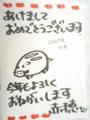 あけまして
おめでとうございます
2007年
元旦
今年もよろしく
おねがいします